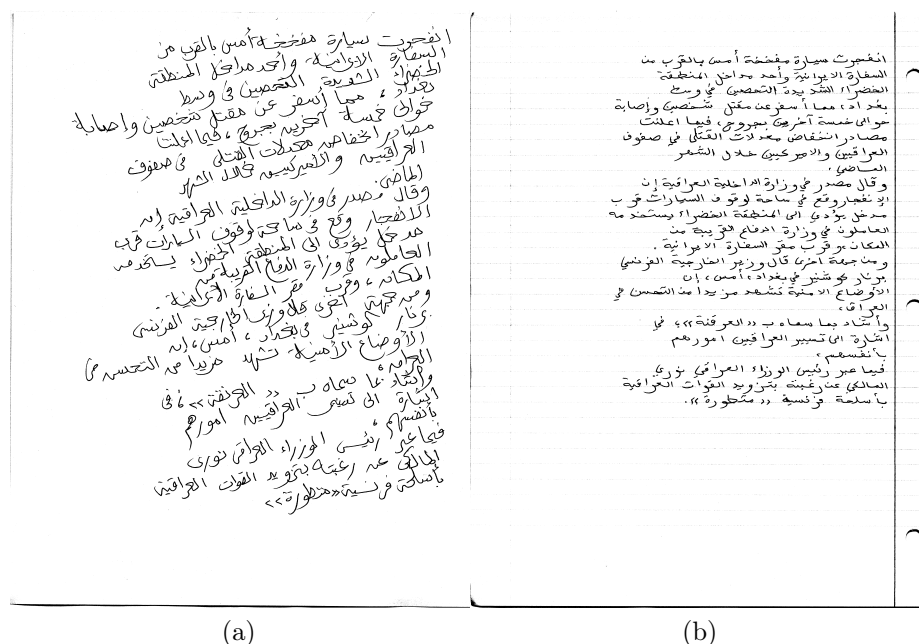 انفجرت سيارة مفخخة أمس بالقرب من
السفارة الايرانية وأحد مداخل المنطقة
الخضراء الشديدة التحصين في وسط
بغداد، مما أسفر عن مقتل شخصين وإصابة
حوالى خمسة آخرين بجروح، فيما اعلنت
مصادر انخفاض معدلات القتلى في صفوف
العراقيين والأميركيين خلال الشهر
الماضي.
وقال مصدر في وزارة الداخلية العراقية إن
الانفجار وقع في ساحة لوقوف السيارات قرب
مدخل يؤدي الى المنطقة الخضراء يستخدمه
العاملون في وزارة الدفاع القريبة من
المكان، وقرب مقر السفارة الايرانية.
ومن جهة أخرى قال وزير الخارجية الفرنسي
برنار كوشنير في بغداد، أمس، إن
الأوضاع الأمنية تشهد مزيدا من التحسن في
العراق،
وأشاد بما سماه ب «العرقنة» في
اشارة الى تسيير العراقيين امورهم
بأنفسهم،
فيما عبر رئيس الوزراء العراقي نوري
المالكي عن رغبته بتزويد القوات العراقية
بأسلحة فرنسية «متطورة»
(a)
انفجرت سيارة مفخخة أمس بالقرب من
السفارة الايرانية وأحد مداخل المنطقة
الخضراء الشديدة التحصين في وسط
بغداد، مما أسفر عن مقتل شخصين وإصابة
حوالى خمسة آخرين بجروح، فيما اعلنت
مصادر انخفاض معدلات القتلى في صفوف
العراقيين والاميركيين خلال الشهر
الماضي.
وقال مصدر في وزارة الداخلية العراقية إن
الإنفجار وقع في ساحة لوقوف السيارات قرب
مدخل يؤدي الى المنطقة الخضراء يستخدمه
العاملون في وزارة الدفاع القريبة من
المكان وقرب مقر السفارة الايرانية.
ومن جهة اخرى قال وزير الخارجية الفرنسي
برنار كوشنير في بغداد، أمس، إن
الأوضاع الامنية تشهد مزيدا من التحسن في
العراق،
وأشاد بما سماه ب «العرقنة» في
اشارة الى تسيير العراقيين امورهم
بأنفسهم،
فيما عبر رئيس الوزراء العراقي نوري
المالكي عن رغبته بتزويد القوات العراقية
بأسلحة فرنسية «متطورة».
(b)